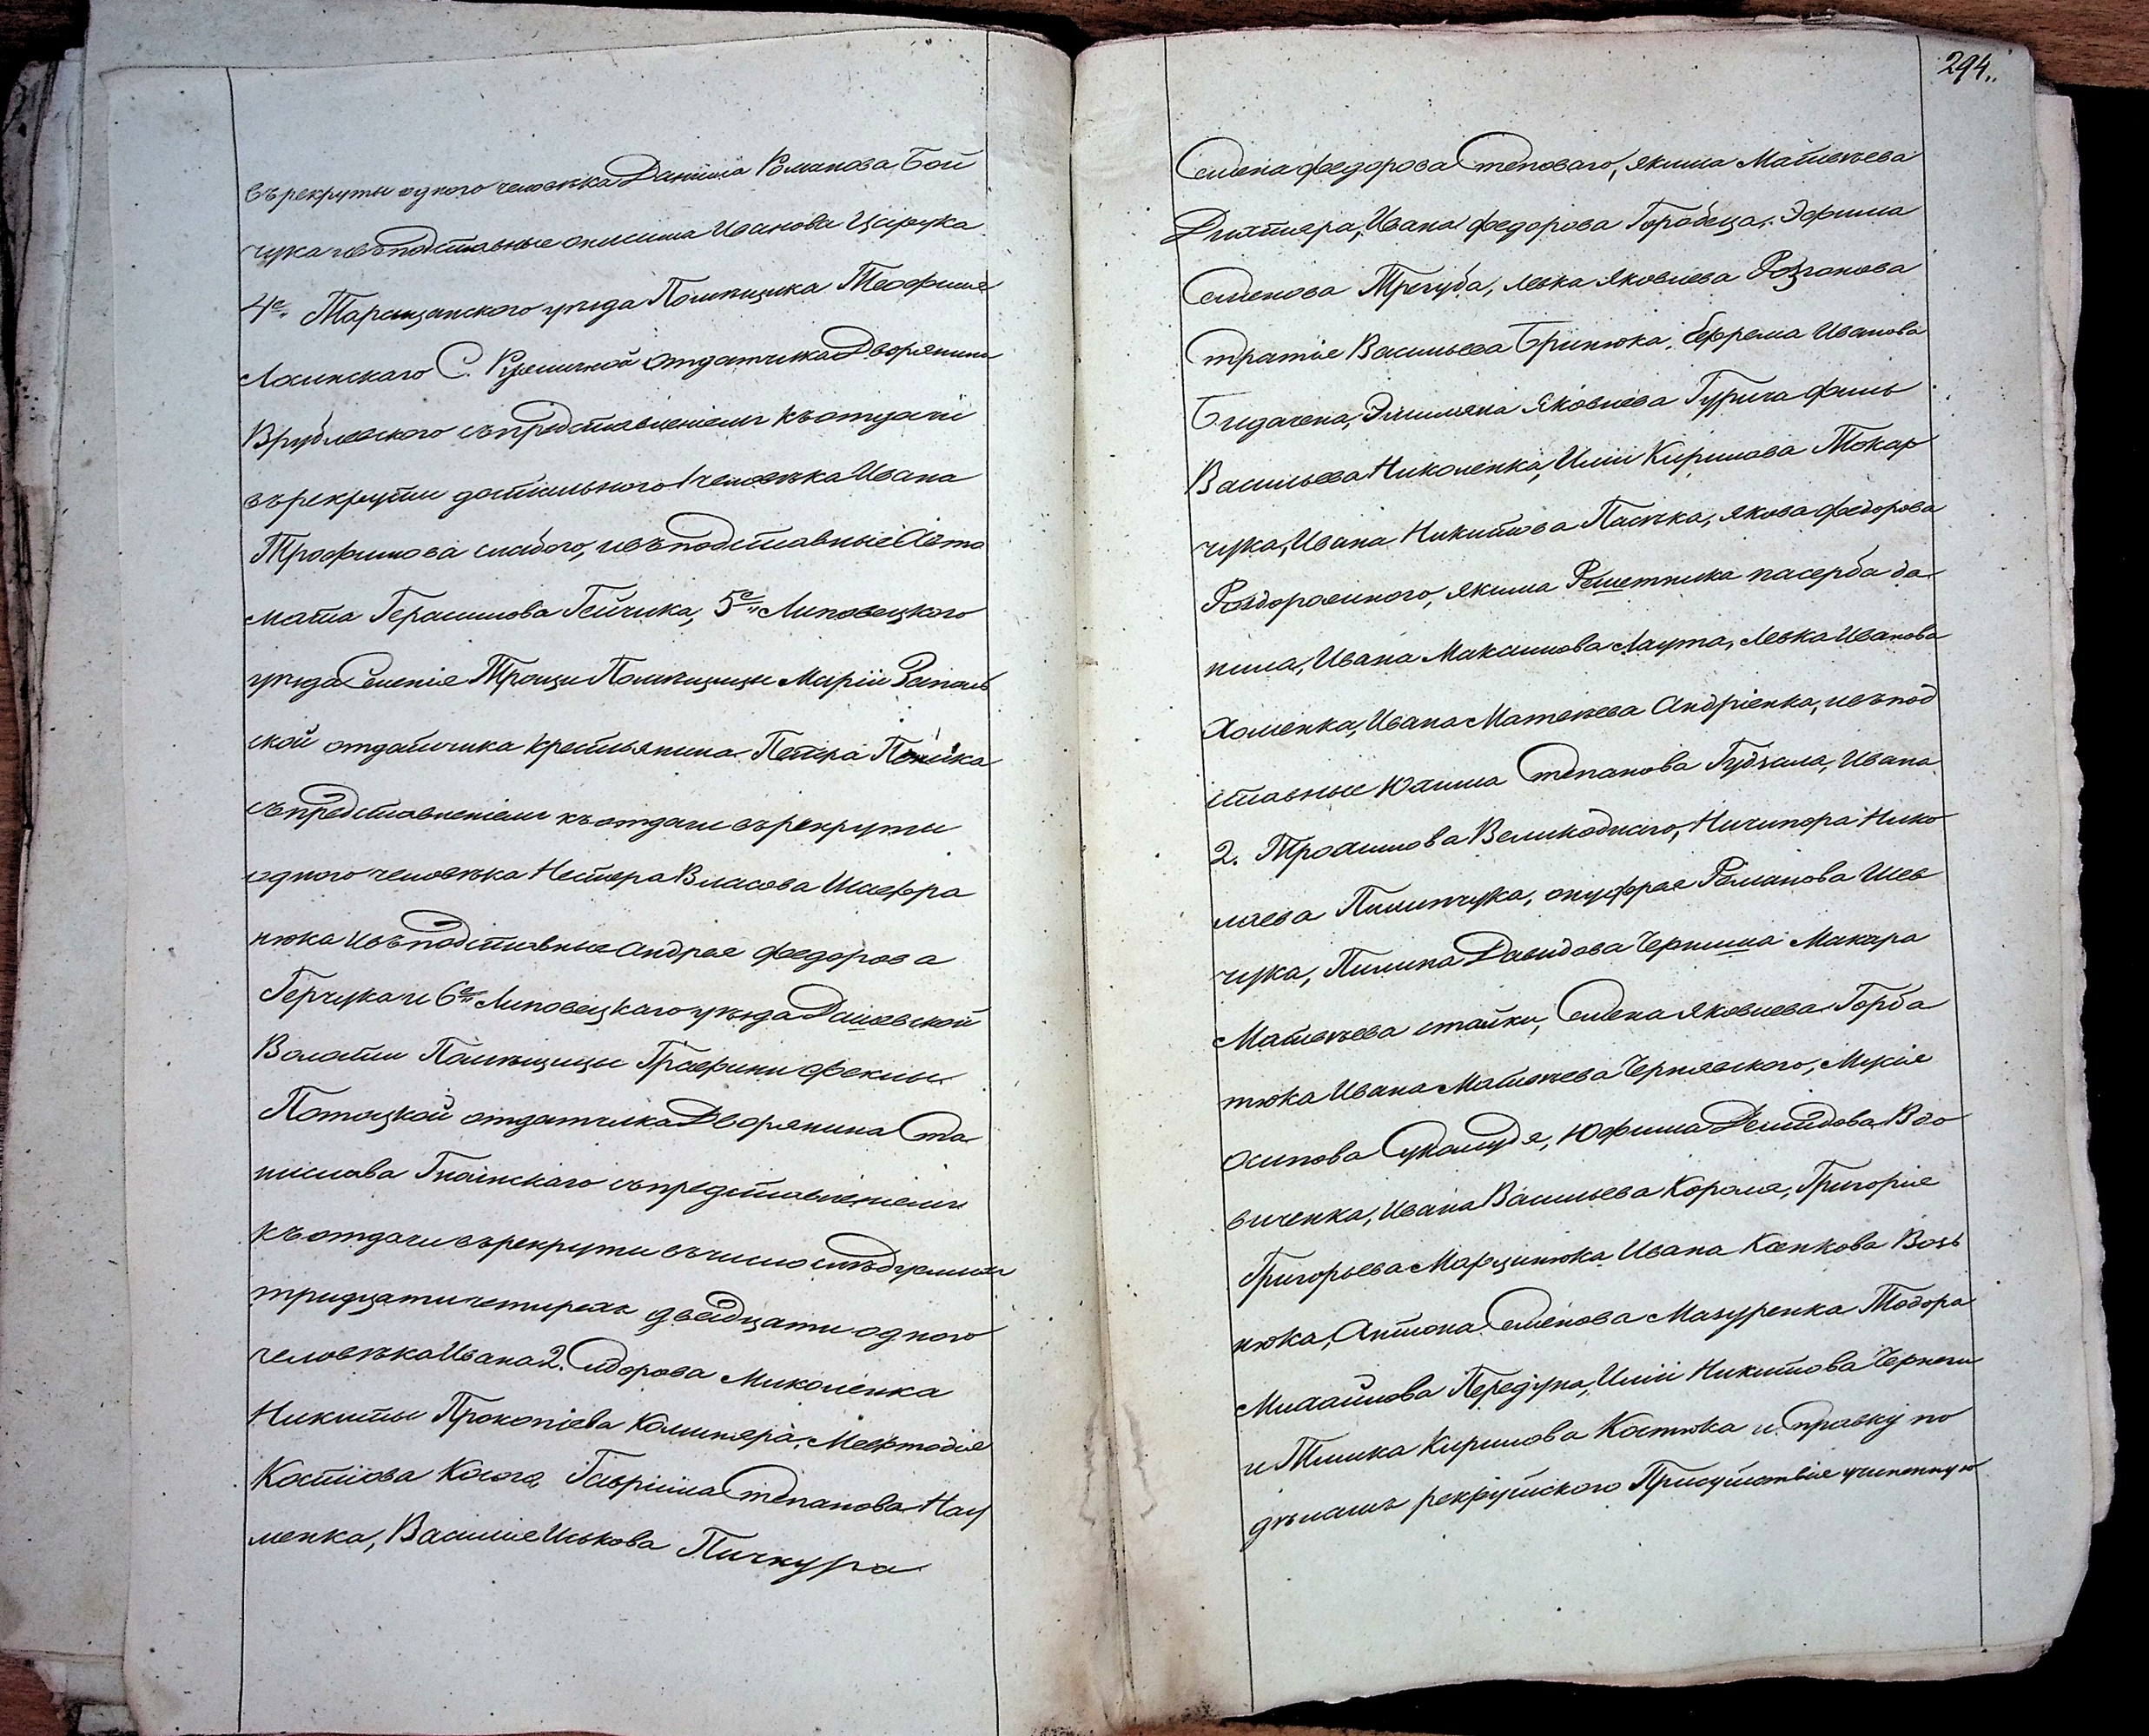 въ рекруты одного человѣка Данiила Романова Бой
чука и въ подставные Онисима Иванова Царука
4е. Таращанского уѣзда Помѣщика Теофиля
Лосинскаго С. Кузминой отдатчика Дворянина
Врублевского съ представленiемъ къ отдачи
въ рекруты достального 1 человѣка Ивана
Трофимова слабого, и въ подставные Авта
мата Герасимова Гейчика, 5е. Липовецкого
уѣзда Селенiя Трощи Помѣщицы Марiи Запаль
ской отдатчика крестьянина Петра
съ представленiемъ къ отдачи въ рекруты
одного человѣка Нестера Власова Шафра
нюка и въ подставные Андрея Федорова
Герчука и 6е. Липовецкаго уѣзда Дашевской
Волости Помѣщицы Графини Феклы
Потоцкой отдатчика Дворянина Ста
нислава Гноинскаго съ представленiемъ
къ отдачи въ рекруты въ число слѣдуемыхъ
тридцати четырехъ двадцати одного
человѣка Ивана 2. Сидорова Миколенка
Никиты Прокопiева Коминяра, Мефтодiя
Костiова Косого, Гаврiила Степанова Нау
менка, Василiя Иськова Пичкура
294.
Семена Федорова Степоваго, Якима Матвѣева
Дихтяра, Ивана Федорова Горобеца, Эфима
Семенова Трегуба, Левка Яковлева Розганова
стратiе Васильева Бринюка, Ефрема Иванова
Бидачена, Эмильяна Яковлева Гурича Филь
Васильева Николенка, Илiи Кирилова Токар
чука, Ивана Никитова Пасѣка, Якова Федорова
Роздорожного, Якима Решетника пасерба да
нила, Ивана Максимова Лаута, Левка Иванова
Хоменка, Ивана Матвѣева Андрiенка, и въ под
ставные Юхима Степанова Гудзала, Ивана
2. Трохимова Великоднаго, Ничипора Нико
лаева Пилипчука, Онуфрея Романова Шев
чука, Пилипа Давидова Черниша Макара
Матвѣева Стайки, Семена Яковлева Горба
тюка Ивана Матвѣева Чернявского, Мусiя
Осипова, Юфима Демидова Вдо
виченка, Ивана Васильева Короля, Григорiя
Григорьева Марцинюка Ивана Каленкова Воз
нюка, Антона Семенова Мазуренка Тодора
Михайлова Передуна, Илiи Никитова Чернеги
и Тимка Кирилова Костюка и справку по
дѣламъ рекрутского Присутствiя учиненную